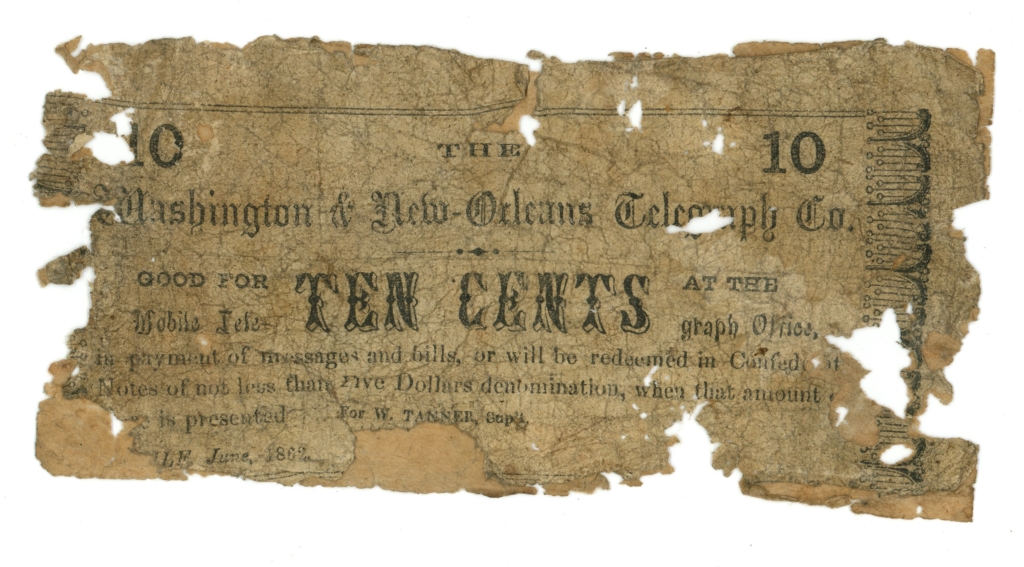 10 THE 10
Washington & New-Orleans Telegraph Co.
GOOD FOR TEN CENTS AT THE
Mobile Tele- graph Office,
in payment of messages and bills, or will be redeemed in
Notes of not less than Five Dollars denomination, when that amount
is presented For W. TANNER, Sup't,
June, 1862.